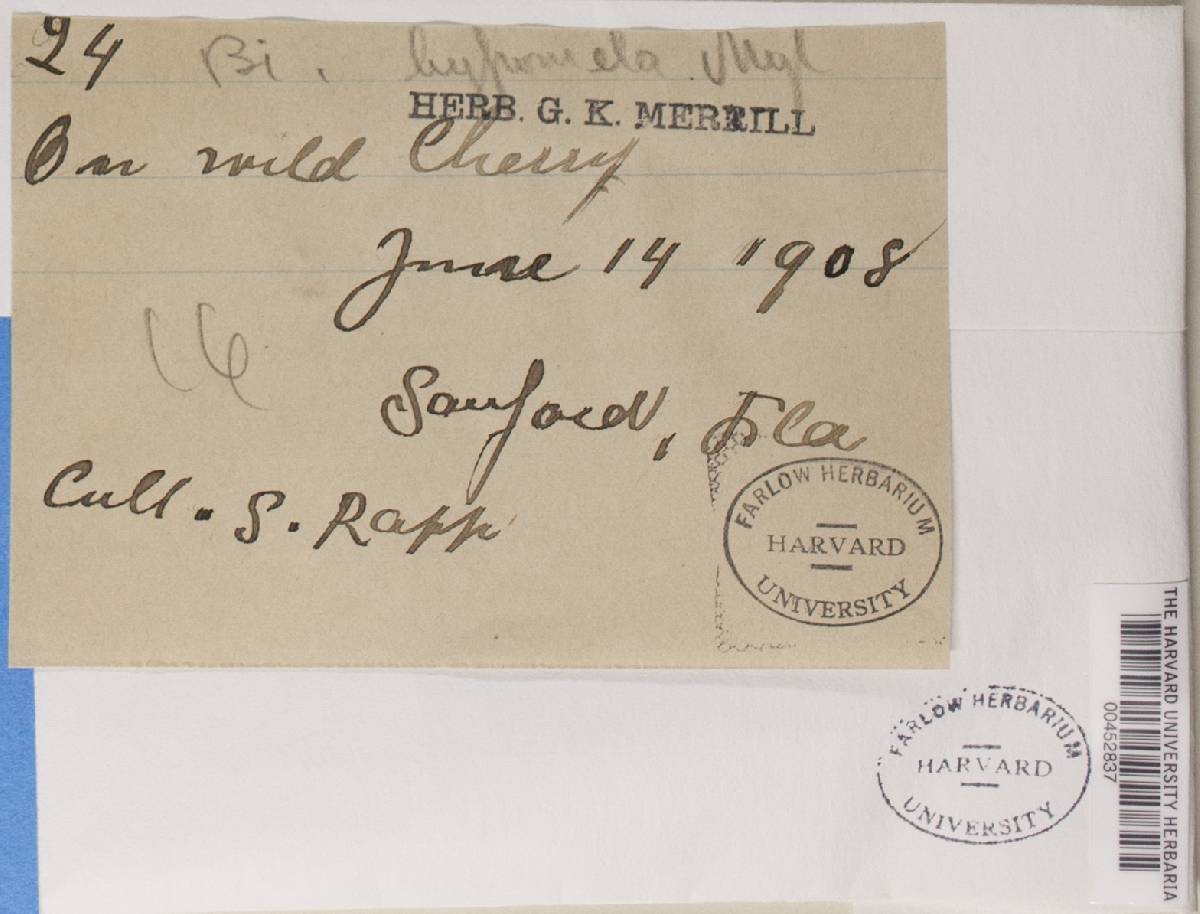 24 Bi. hypomela Nyl
HERB. G. K. MERRILL
On wild Cherry
June 14 1908
16
Sanford, Fla
Coll. S. Rapp
FARLOW HERBARIUM
HARVARD
UNIVERSITY
FARLOW HERBARIUM
HARVARD
UNIVERSITY
THE HARVARD UNIVERSITY HERBARIA
00452837